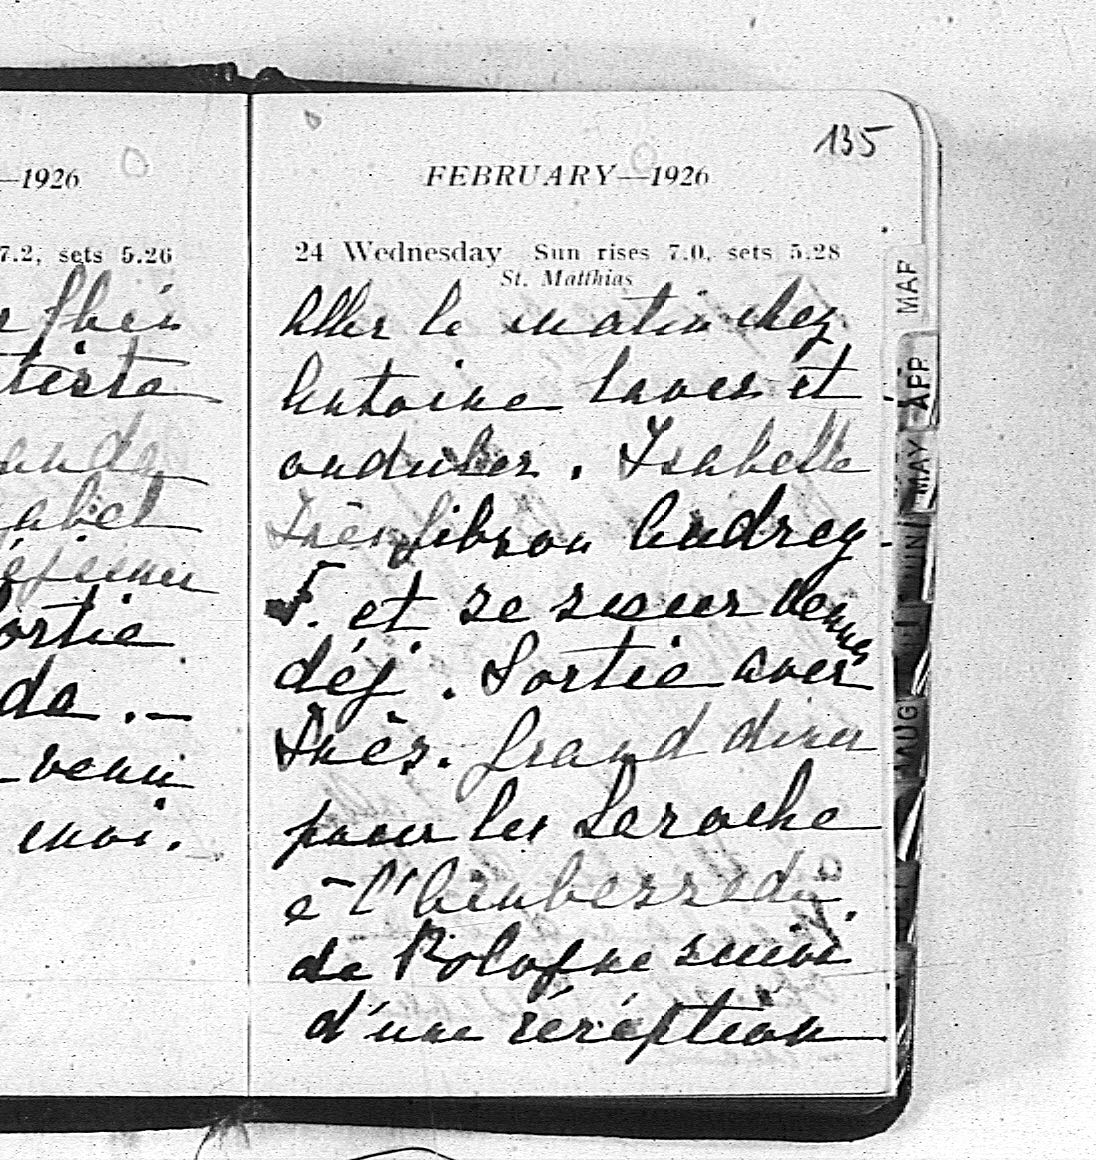 135
—1926
7.2, sets 5.26
tiste
abel
ortie
da . —
venu
FEBRUARY—1926
24 Wednesday Sun rises 7.0, sets 5.28
St. Matthias
Aller le matin chez
Antoine laver et
onduler . Isabelle
Inès Audrey
F. et se sœur
déj . Sortie aver
Inès. Grand diner
pour les Laroche
à l'Ambessade
de Pologne suivi
d'une récéption
MAR
APR
MAY
JUN
AUG